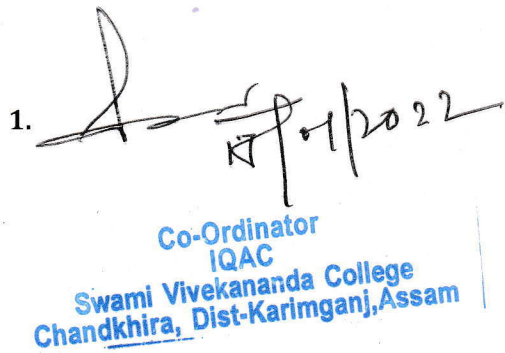 1.
/2022
Co-Ordinator
IQAC
Swami Vivekananda College
Chandkhira, Dist-Karimganj,Assam